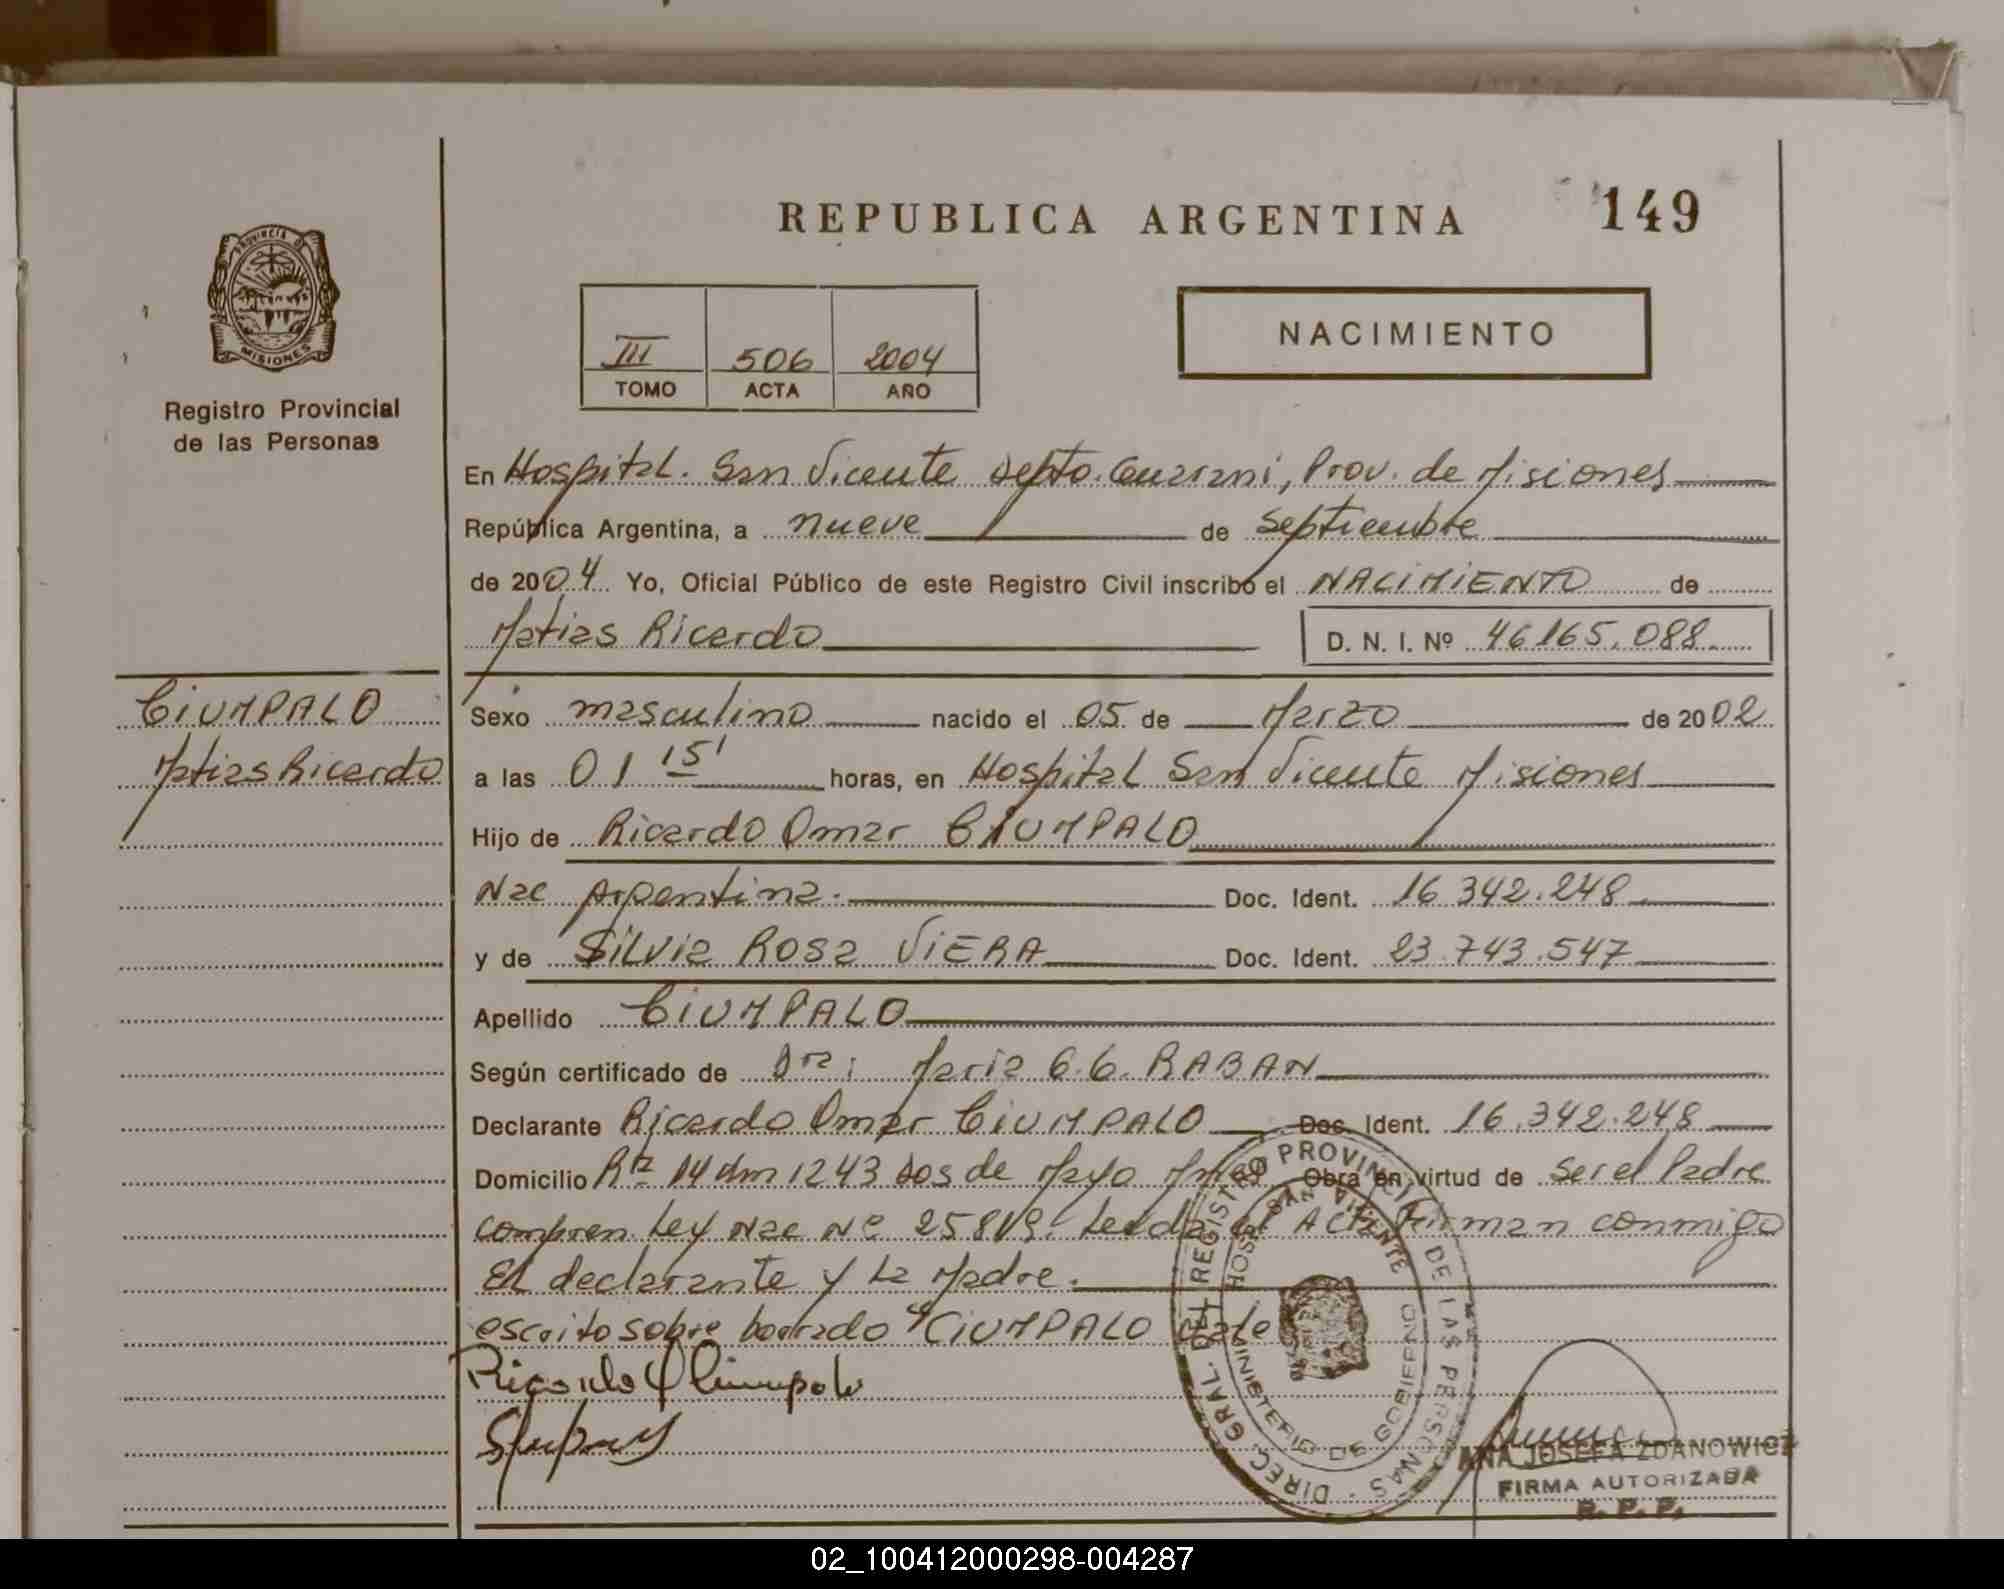 REPUBLICA ARGENTINA 149
PROVINCIA DE
MISIONES
Registro Provincial
de las Personas
III 506 2004
TOMO ACTA AÑO
NACIMIENTO
En Hospital. San Vicente Depto. Guarani, Prov. de Misiones
República Argentina, a nueve de Septiembre
de 2004 Yo, Oficial Público de este Registro Civil inscribo el NACIMIENTO de
Matias Ricardo D. N. I. Nº 46.165.088
CIUMPALO
Matias Ricardo
Sexo masculino nacido el 05 de Marzo de 2002
a las 01 15' horas, en Hospital San Vicente Misiones
Hijo de Ricardo Omar CIUMPALO
Nac Argentina. Doc. Ident. 16.342.248
y de Silvia Rosa VIERA Doc. Ident. 23.743.547
Apellido CIUMPALO
Según certificado de Dra: Maria G.G. RABAN
Declarante Ricardo Omar CIUMPALO Doc. Ident. 16.342.248
Domicilio Rta 14 Km 1243 Dos de Mayo Mnes Obra en virtud de Ser el Padre
compren Ley Nac Nº 25819. Leida el Acta Firman conmigo
El declarante y La Madre.
escrito sobre borrado "CIUMPALO vale
Ricardo O Ciumpalo
DIREC. GRAL. DEL REGISTRO PROVINCIAL DE LAS PERSONAS
HOSP. SAN VICENTE
MINISTERIO DE GOBIERNO
ANA JOSEFA ZDANOWICZ
FIRMA AUTORIZADA
R. P. P.
02_100412000298-004287